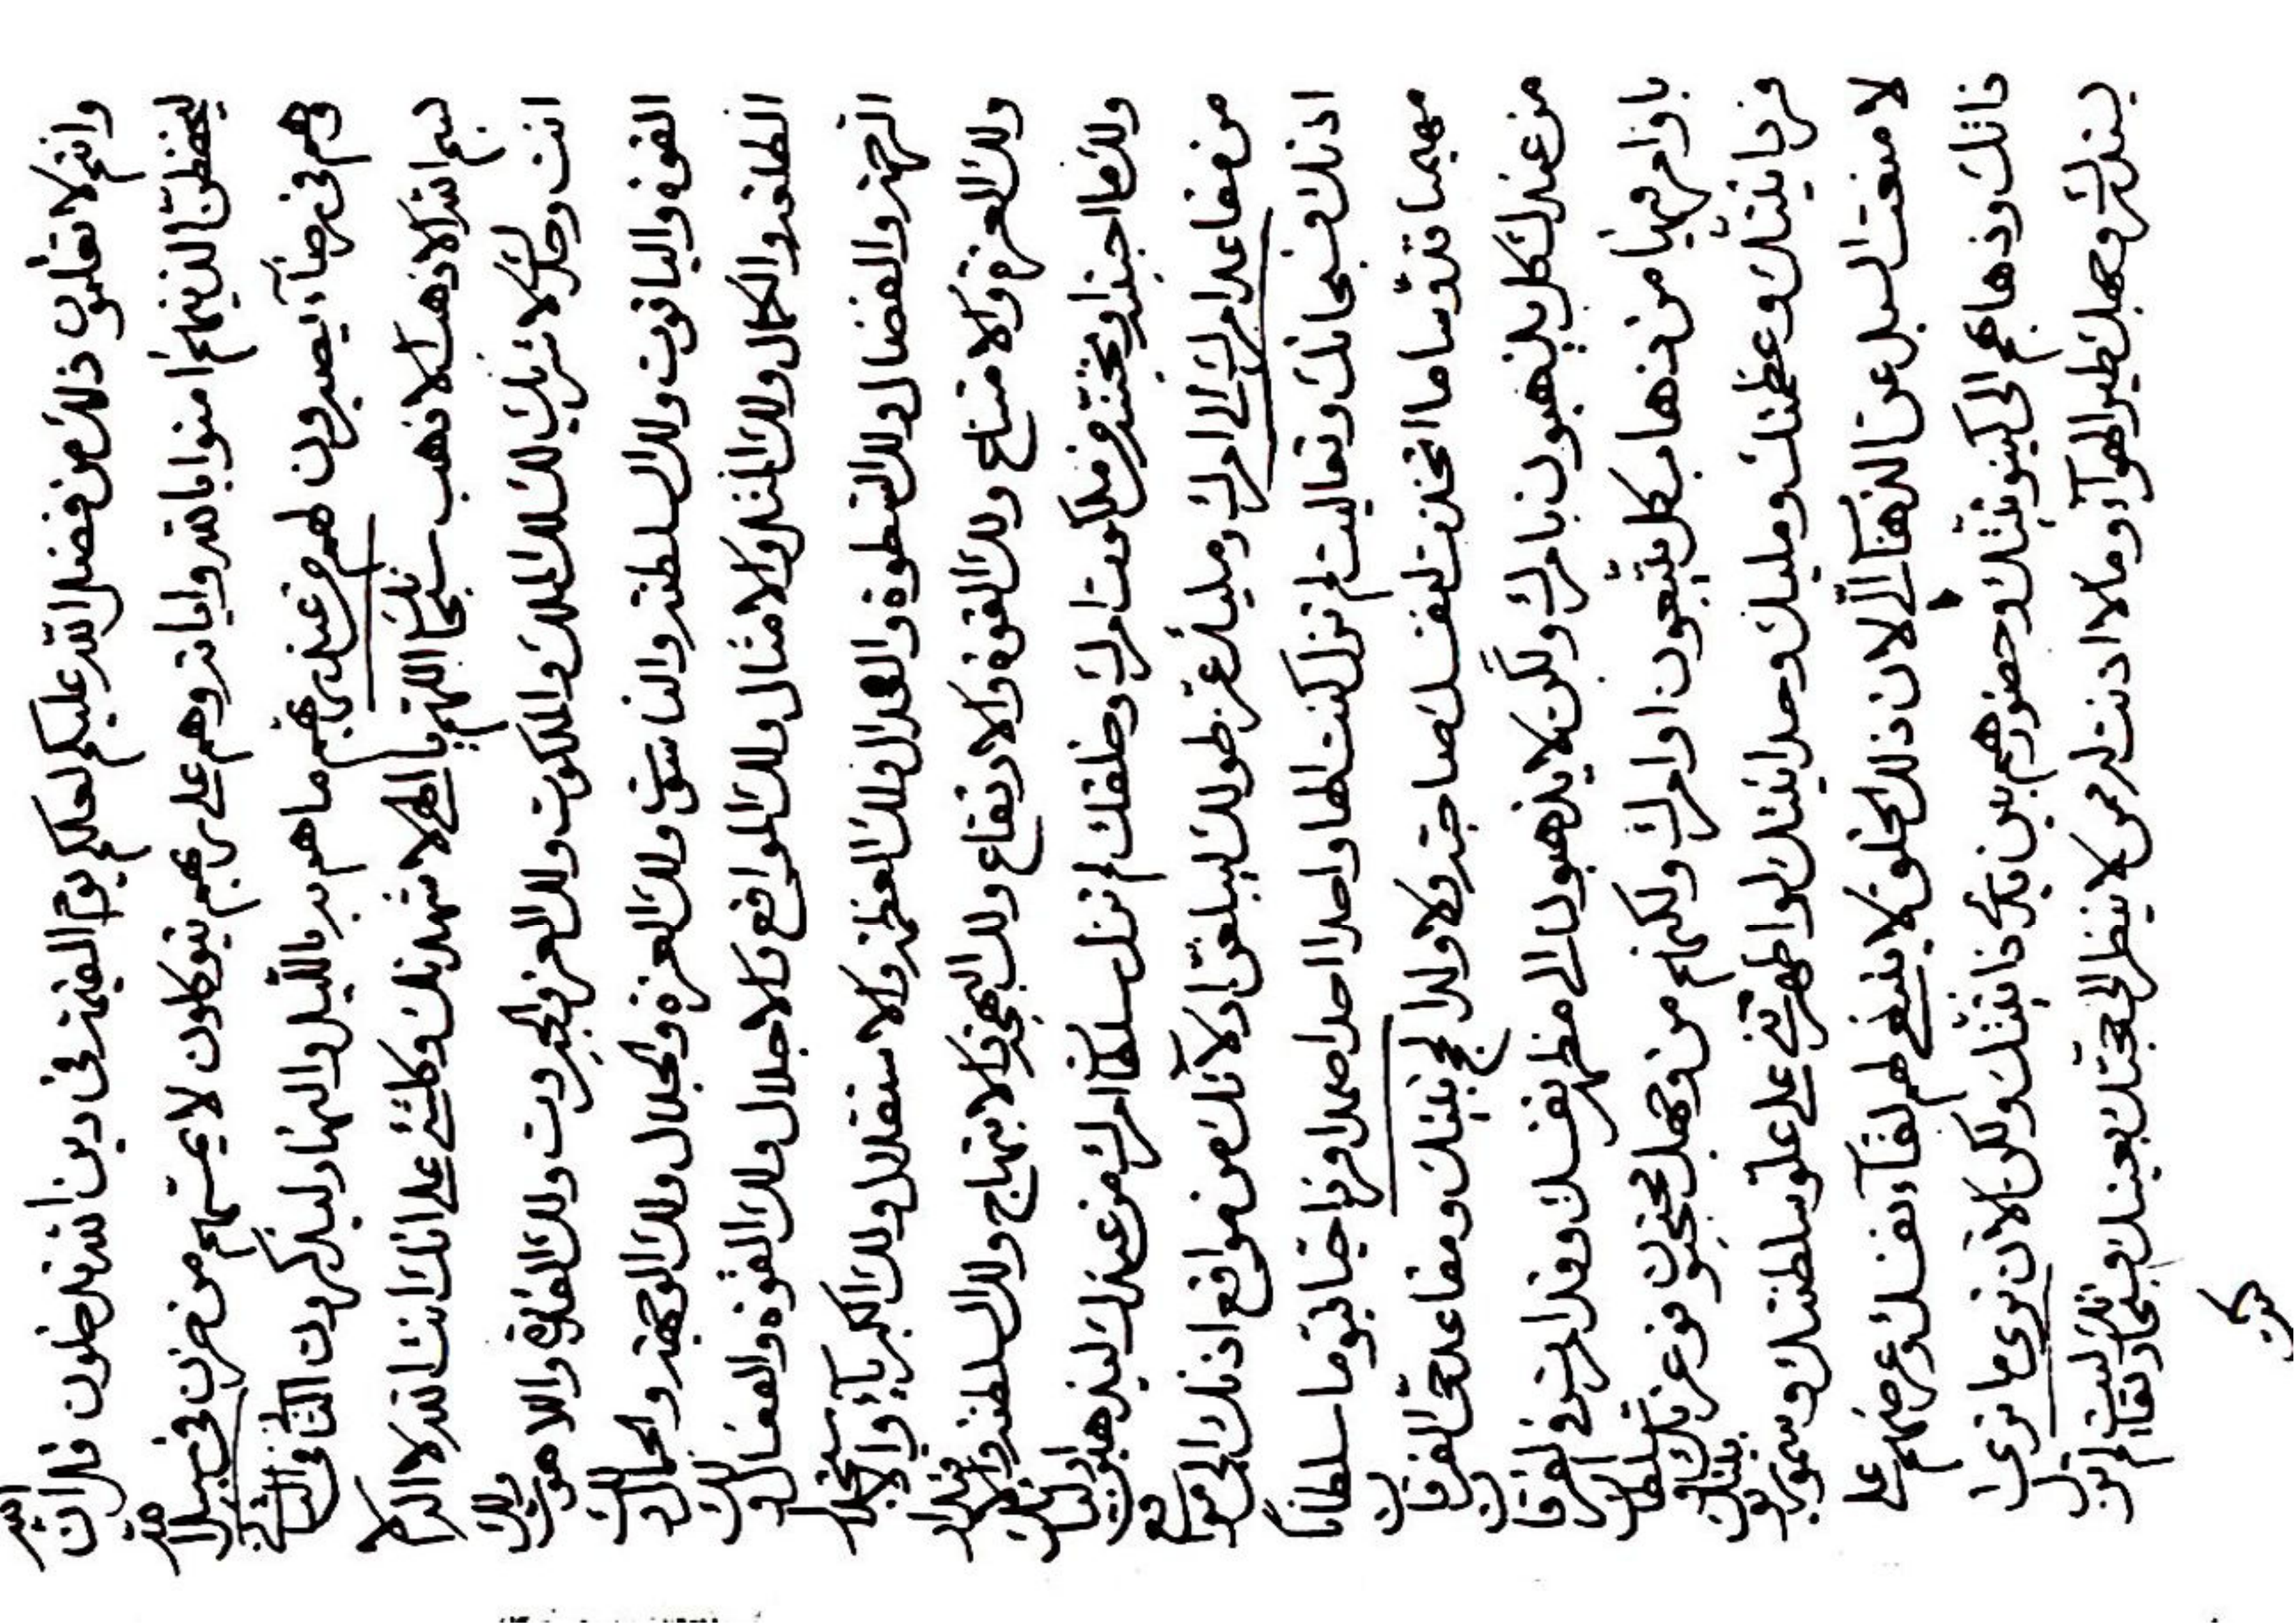 وانتم لا تعلمون ذلك من فضل الله عليكم لعلكم يوم القيمة في دين الله تدخلون قل ان الله
ليحفظن الذينهم امنوا بالله واياته وهم على ربهم يتوكلون لا يمسهم من حزن في سبيل الله
وهم في رضاء الله يصبرون لهم من عند ربهم ما هم به بالليل والنهار ليذكرون الثاني في الثاني
بسم الله الاذهب الاذهب سبحانك اللهم يا الهي لاشهدنك وكلشئ على انك انت الله لا اله الا
انت وحدك لا شريك لك لك الملك والملكوت ولك العز والجبروت ولك القدرة واللاهوت ولك
القوة والياقوت ولك السلطنة والناسوت ولك العزة والجلال ولك الوجهة والجمال ولك
الطلعة والكمال ولك المثل والامثال ولك المواقع والاجلال ولك القوة والفعال ولك
الرحمة والفضال ولك السطوة والعدال ولك العظمة والاستقلال ولك الكبرياء والاستجلال
ولك العزة والامتناع ولك القوة والارتفاع ولك البهجة والابتهاج ولك السلطنة والاقتدار
ولك ما احببته او تحبنه من ملكوت امرك وخلقك لم تزل سلطان امرك من عندك ليذهبون اولئك
من مقاعد امرك الى امرك ومليك عز طولك ليبلغن ادلائك من مواقع اذنك الى مواقع
اذنك فسبحانك وتعاليت لم تزل كنت الها واحدا احدا صمدا فردا حيا قيوما سلطانا
مهيمنا قدوسا ما اتخذت لنفسك صاحبة ولا ولدا لحج بيتك ومقاعد حق الفرقان
من عندك كل يذهبون بامرك ولكن لا يذهبون الى مظهر نفسك وقد امرت في الفرقان
باوامر فيها من ذهاب كل يتبعون اوامرك ولكنهم من وجهك محتجبون فوعزتك سلطان
فردانيتك وعظمتك ومليك وحدانيتك لو اظهرتني على علو سلطنتك وسمو ربوبيتك
لا منعت السبل عن الذهاب الا لان ذلك الخلق لا ينبغي لهم لقاء نفسك وعرضهم على
ذاتك وذهابهم الى كينونيتك وحضورهم بين يدي ذاتيتك ولكن الان ترى ما ترى
بيدك وجهك طير الهواء وما لا اذنت له من لا ينظر الى حجتك بعينك فسبحانك وتعاليت لم تزل